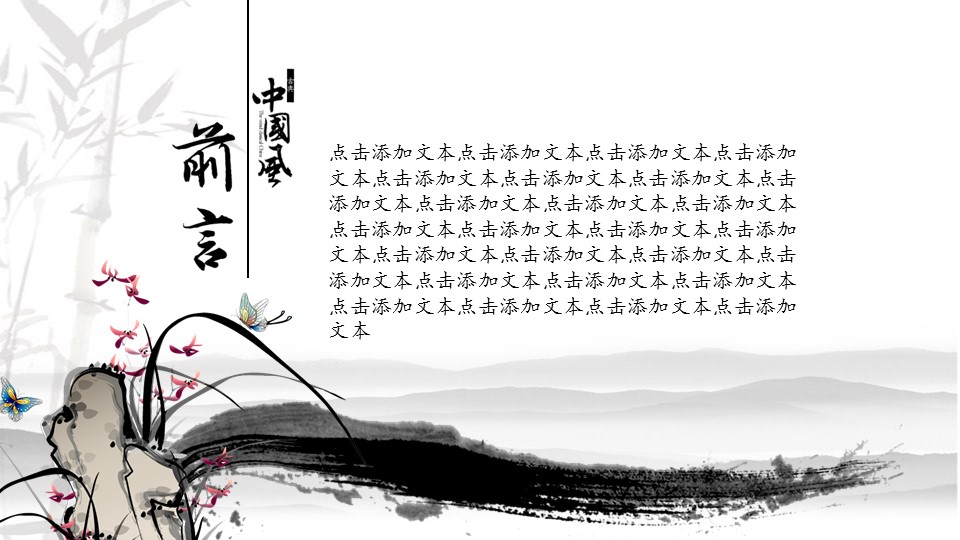 前言
中國風
点击添加文本点击添加文本点击添加文本点击添加
文本点击添加文本点击添加文本点击添加文本点击
添加文本点击添加文本点击添加文本点击添加文本
点击添加文本点击添加文本点击添加文本点击添加
文本点击添加文本点击添加文本点击添加文本点击
添加文本点击添加文本点击添加文本点击添加文本
点击添加文本点击添加文本点击添加文本点击添加
文本